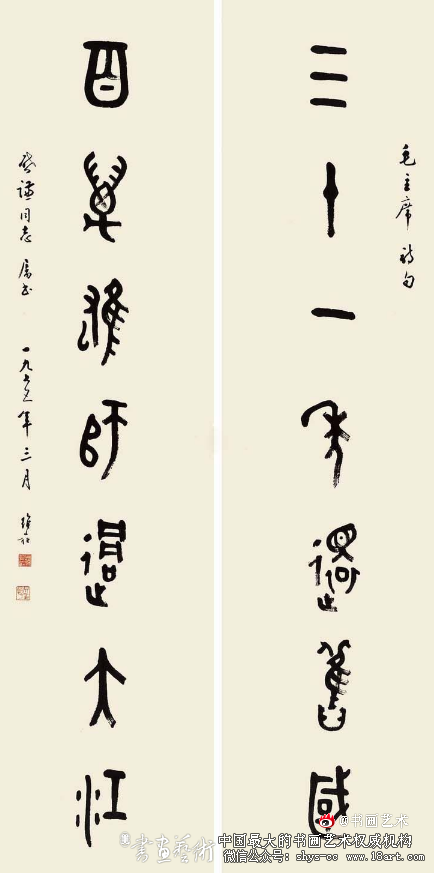 毛主席詩句
三十一年還舊國
百萬雄師過大江
謙同志属书
一九七年三月
@书画艺术
書画藝術
中国最大的书画艺术权威机构
微信公众号：shys-cc www.18art.com